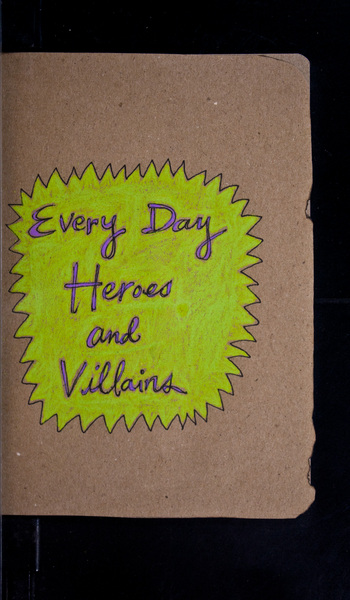 Every Day
Heroes
and
Villains